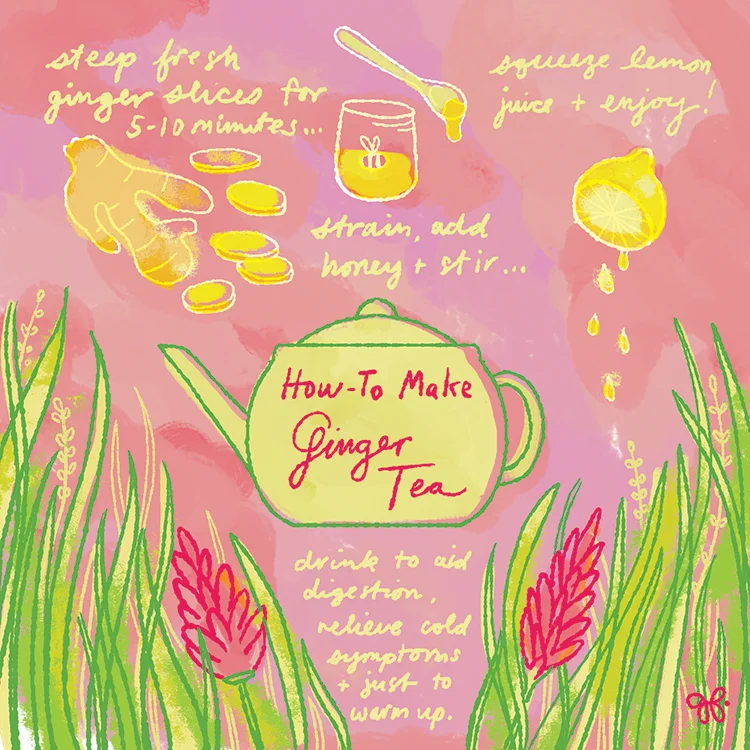 steep fresh
ginger slices for
5-10 minutes...
strain, add
honey + stir...
squeeze lemon
juice + enjoy!
How-To Make
Ginger
Tea
drink to aid
digestion,
relieve cold
symptoms
+ just to
warm up.